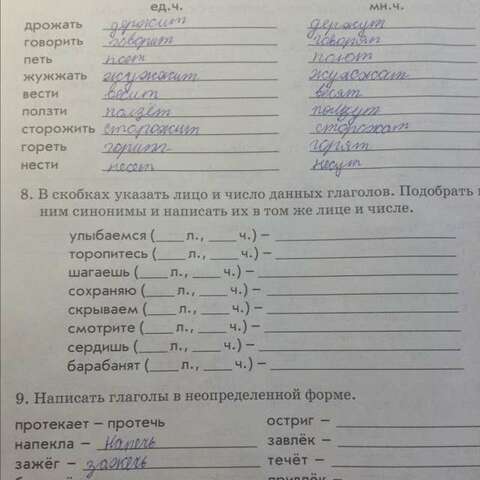 ед.ч. мн.ч.
дрожать держит держут
говорить говорит говорят
петь поет полют
жужжать жужжит жужжат
вести весит весят
ползти ползёт ползут
сторожить сторожит сторожат
гореть горит горят
нести несет несут
8. В скобках указать лицо и число данных глаголов. Подобрать
ним синонимы и написать их в том же лице и числе.
улыбаемся (___ л., ___ ч.) –
торопитесь (___ л., ___ ч.) –
шагаешь (___ л., ___ ч.) –
сохраняю (___ л., ___ ч.) –
скрываем (___ л., ___ ч.) –
смотрите (___ л., ___ ч.) –
сердишь (___ л., ___ ч.) –
барабанят (___ л., ___ ч.) –
9. Написать глаголы в неопределенной форме.
протекает – протечь остриг –
напекла – Напечь завлёк –
зажёг – зажечь течёт –